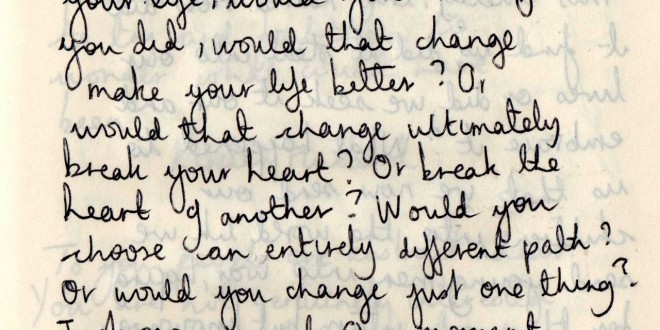 your life, would you
you did, would that change
make your life better? Or
would that change ultimately
break your heart? Or break the
heart of another? Would you
choose an entirely different path?
Or would you change just one thing?
moment